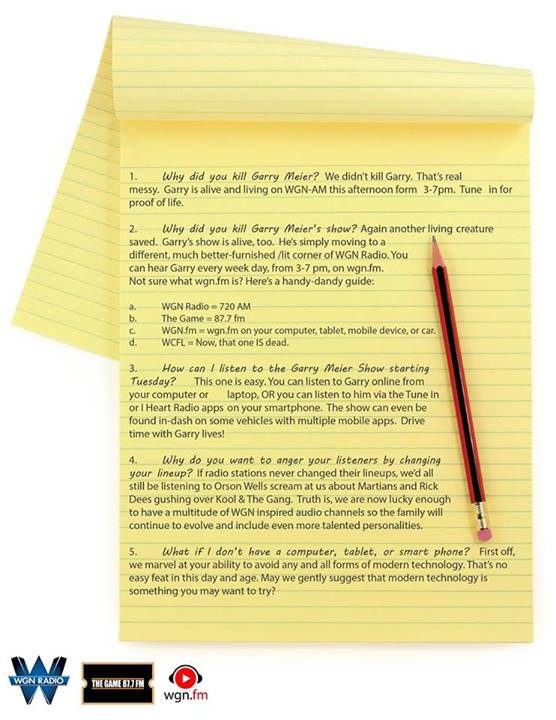 1. Why did you kill Garry Meier? We didn't kill Garry. That's real
messy. Garry is alive and living on WGN-AM this afternoon form 3-7pm. Tune in for
proof of life.
2. Why did you kill Garry Meier's show? Again another living creature
saved. Garry's show is alive, too. He's simply moving to a
different, much better-furnished /lit corner of WGN Radio. You
can hear Garry every week day, from 3-7 pm, on wgn.fm.
Not sure what wgn.fm is? Here's a handy-dandy guide:
a. WGN Radio = 720 AM
b. The Game = 87.7 fm
c. WGN.fm = wgn.fm on your computer, tablet, mobile device, or car.
d. WCFL = Now, that one IS dead.
3. How can I listen to the Garry Meier Show starting
Tuesday? This one is easy. You can listen to Garry online from
your computer or laptop, OR you can listen to him via the Tune In
or I Heart Radio apps on your smartphone. The show can even be
found in-dash on some vehicles with multiple mobile apps. Drive
time with Garry lives!
4. Why do you want to anger your listeners by changing
your lineup? If radio stations never changed their lineups, we'd all
still be listening to Orson Wells scream at us about Martians and Rick
Dees gushing over Kool & The Gang. Truth is, we are now lucky enough
to have a multitude of WGN inspired audio channels so the family will
continue to evolve and include even more talented personalities.
5. What if I don't have a computer, tablet, or smart phone? First off,
we marvel at your ability to avoid any and all forms of modern technology. That's no
easy feat in this day and age. May we gently suggest that modern technology is
something you may want to try?
W
WGN RADIO
THE GAME 87.7 FM
wgn.fm